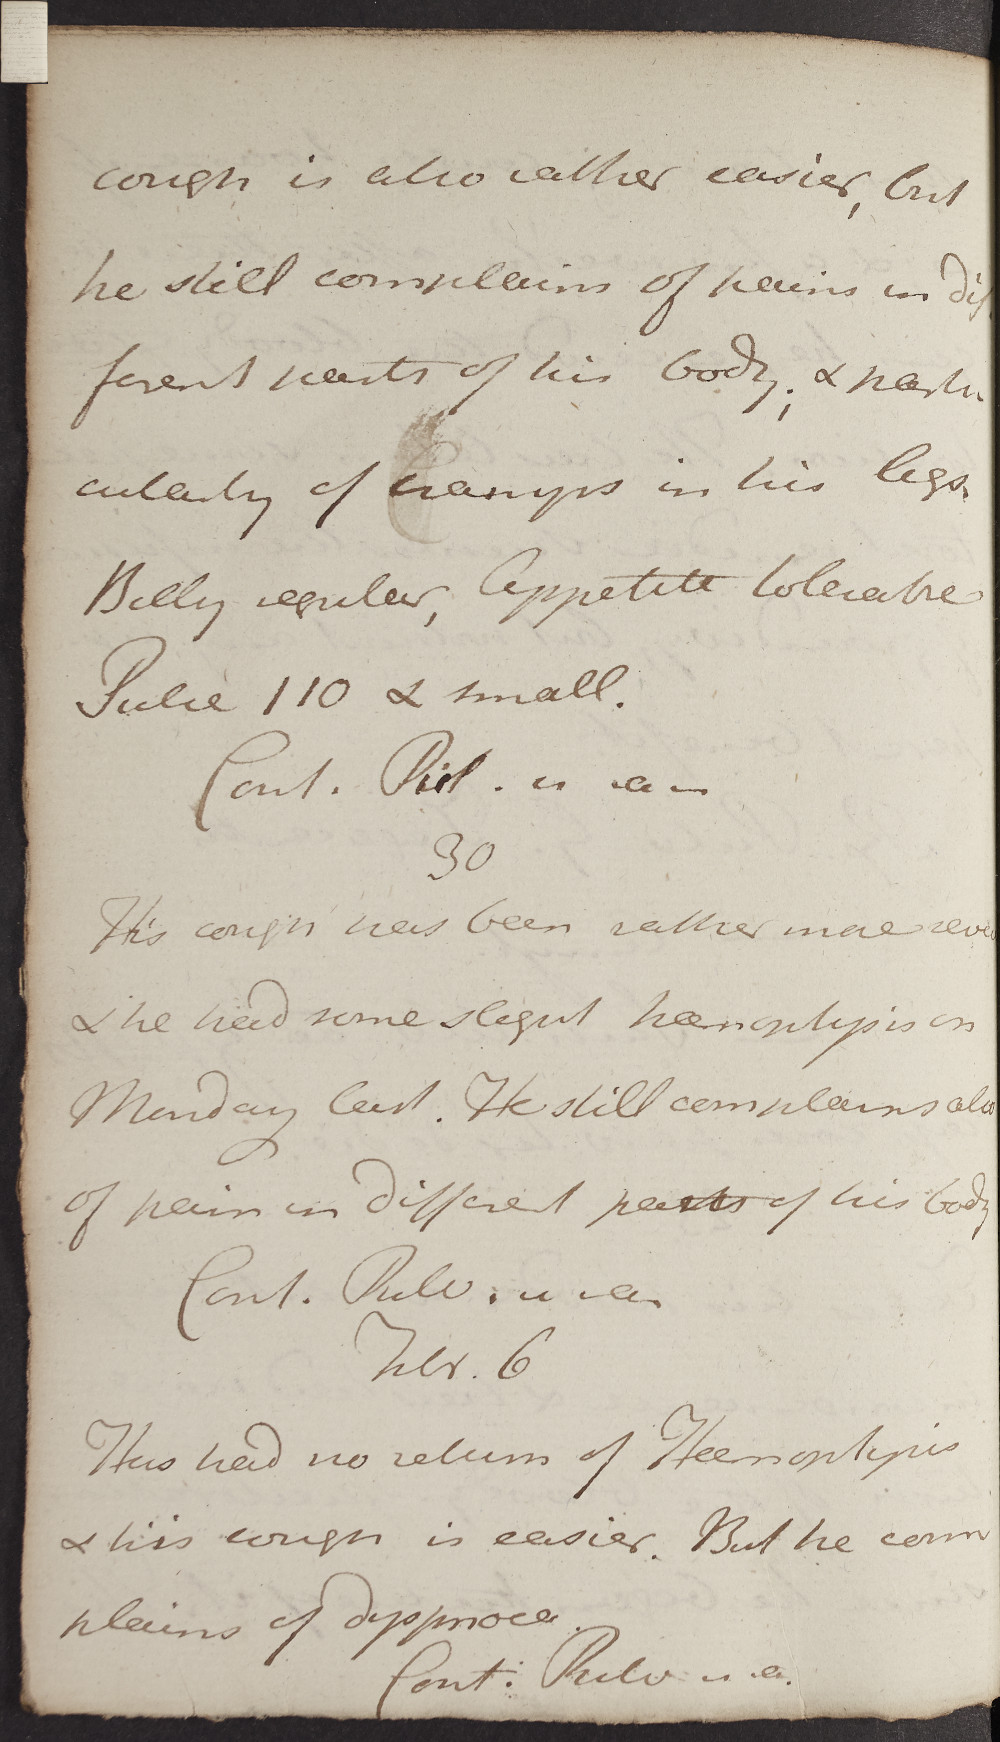 cough is also rather easier, but
he still complains of pains in dif
ferent parts of his body; & parti
cularly of cramps in his legs.
Belly regular, Appetite tolerable
Pulse 110 & small.
Cont. Pil. u a
30
His cough has been rather more severe
& he had some slight haemoptysis on
Monday last. He still complains also
of pain in different parts of his body
Cont. Pulv. u a
Febr. 6
Has had no return of Haemoptysis
& his cough is easier. But he com
plains of dyspnoea.
Cont. Pulv u a.